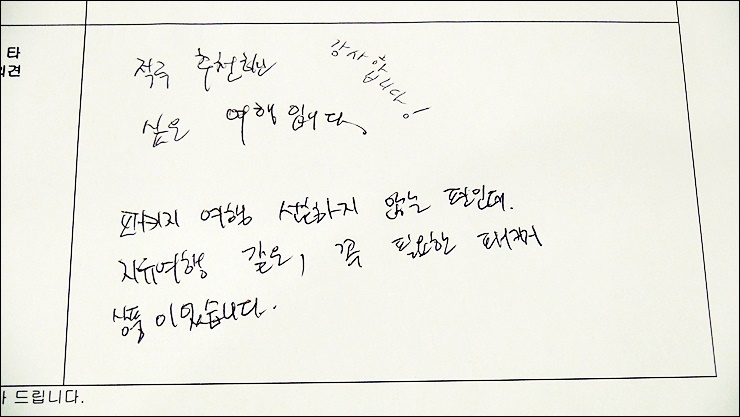 타
의견
적극 추천하고
싶은 여행입니다.
감사합
니다!
패키지 여행 선호하지 않는 편인데.
자유여행 같은, 꼭 필요한 패키지
상품이었습니다.
드립니다.